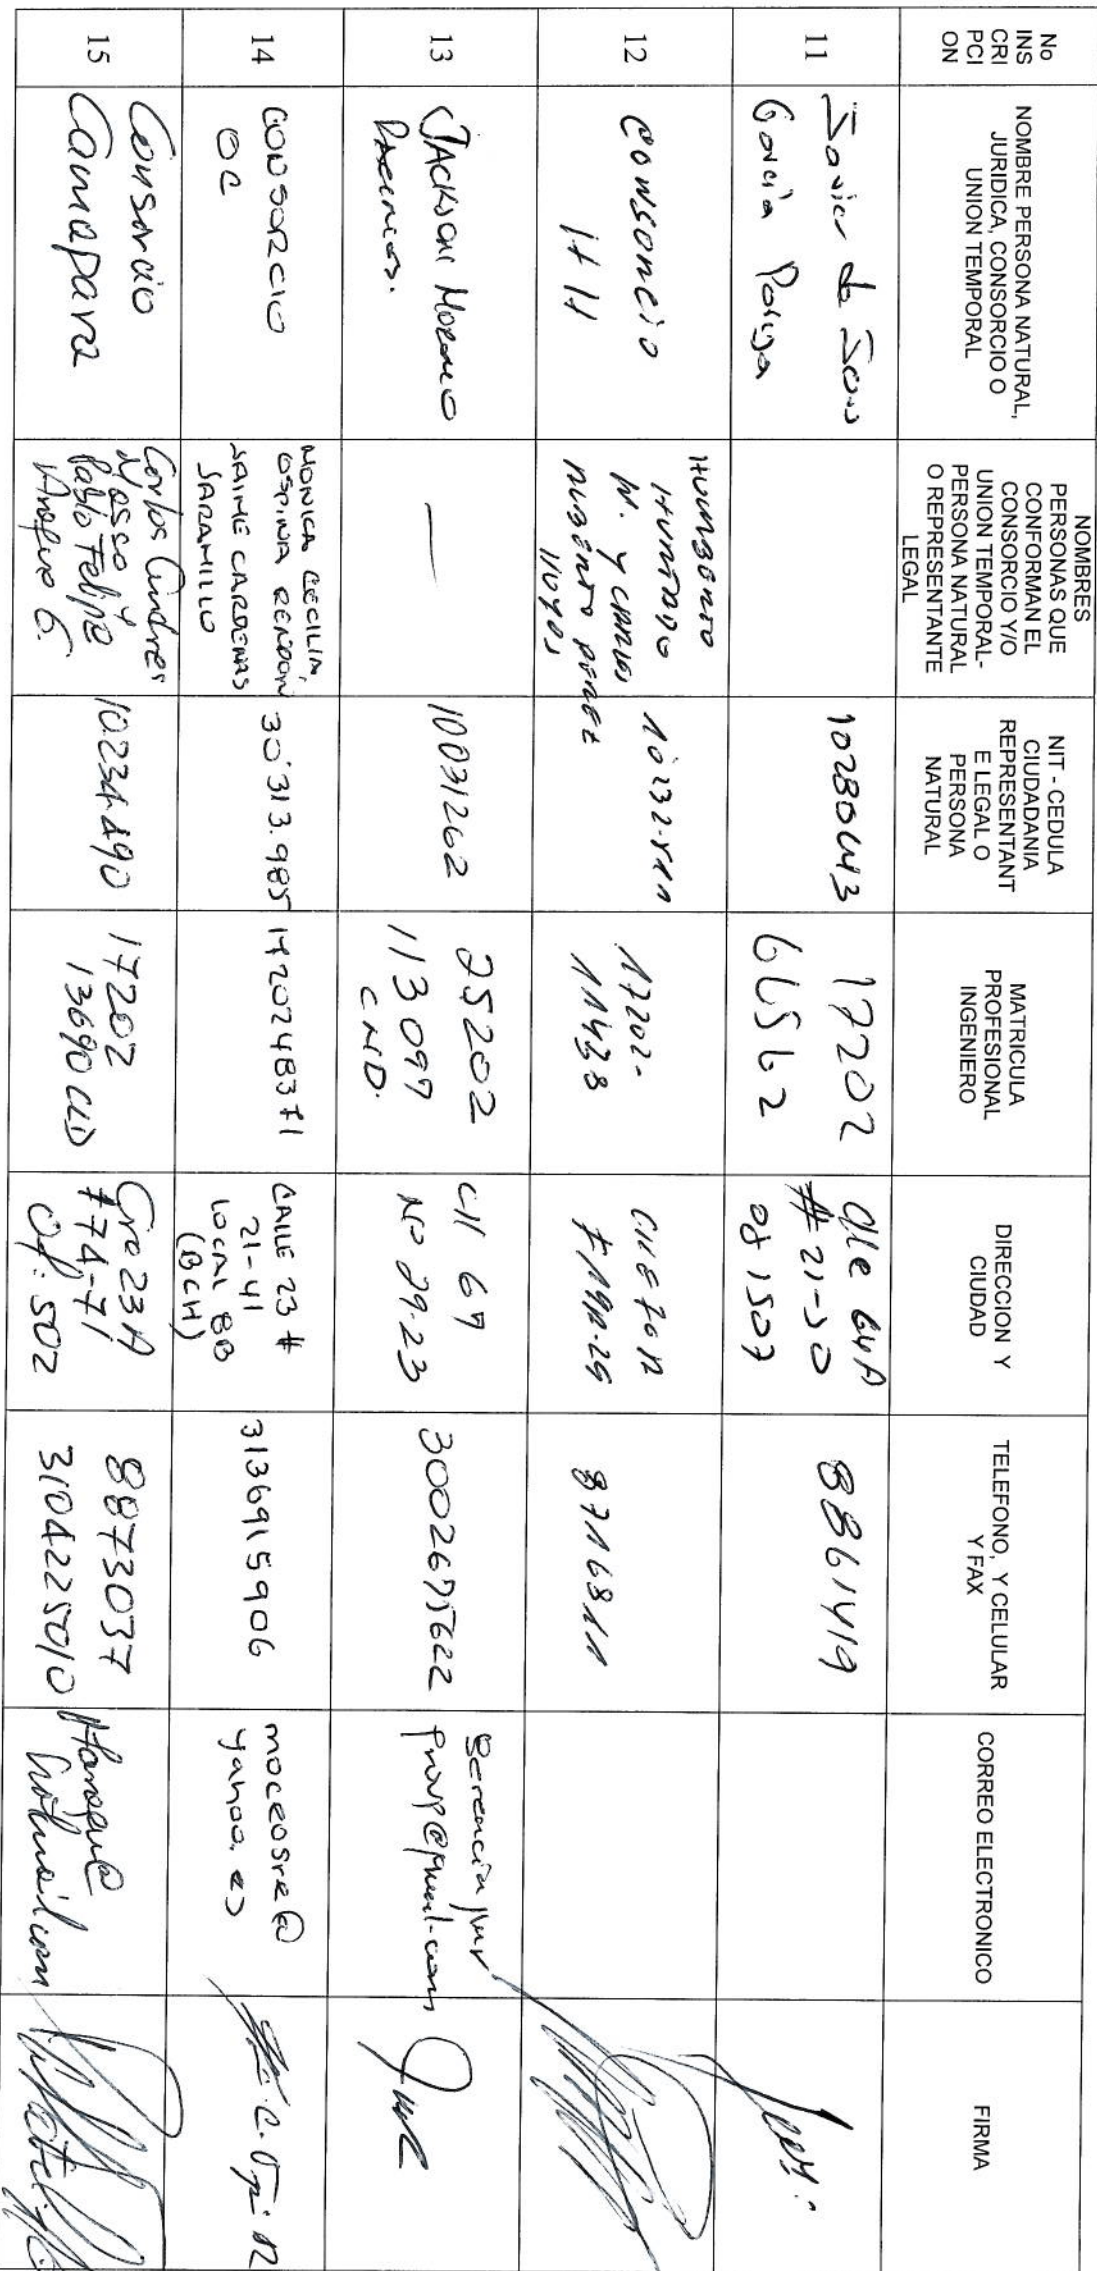 No
INS
CRI
PCI
ON
NOMBRE PERSONA NATURAL,
JURIDICA, CONSORCIO O
UNION TEMPORAL
NOMBRES
PERSONAS QUE
CONFORMAN EL
CONSORCIO Y/O
UNION TEMPORAL-
PERSONA NATURAL
O REPRESENTANTE
LEGAL
NIT - CEDULA
CIUDADANIA
REPRESENTANT
E LEGAL O
PERSONA
NATURAL
MATRICULA
PROFESIONAL
INGENIERO
DIRECCION Y
CIUDAD
TELEFONO, Y CELULAR
Y FAX
CORREO ELECTRONICO
FIRMA
11
Javier de Jesus
Garcia
10280443
17202
Clle 64A
# 21-50
of 1507
8861419
12
CONSORCIO
H H
HUMBERTO
HURTADO
M. Y CARLOS
17202-
11438
8716811
13
JACKSON MORENO
—
10031262
25202
113097
CND.
Cll 67
No 29-23
3002675622
14
CONSORCIO
OC
MONICA CECILIA
OSPINA RENDON
JAIME CARDENAS
JARAMILLO
30'313.985
1720248371
CALLE 23 #
21-41
LOCAL BB
(BCH)
3136915906
moceosre@
yahoo.es
15
Consorcio
Camapara
Carlos Andres
Masso y
Pablo Felipe
10234490
17202
13690 CLD
Cra 23A
#74-71
Of: 502
8873037
3104225010
hotmail.com